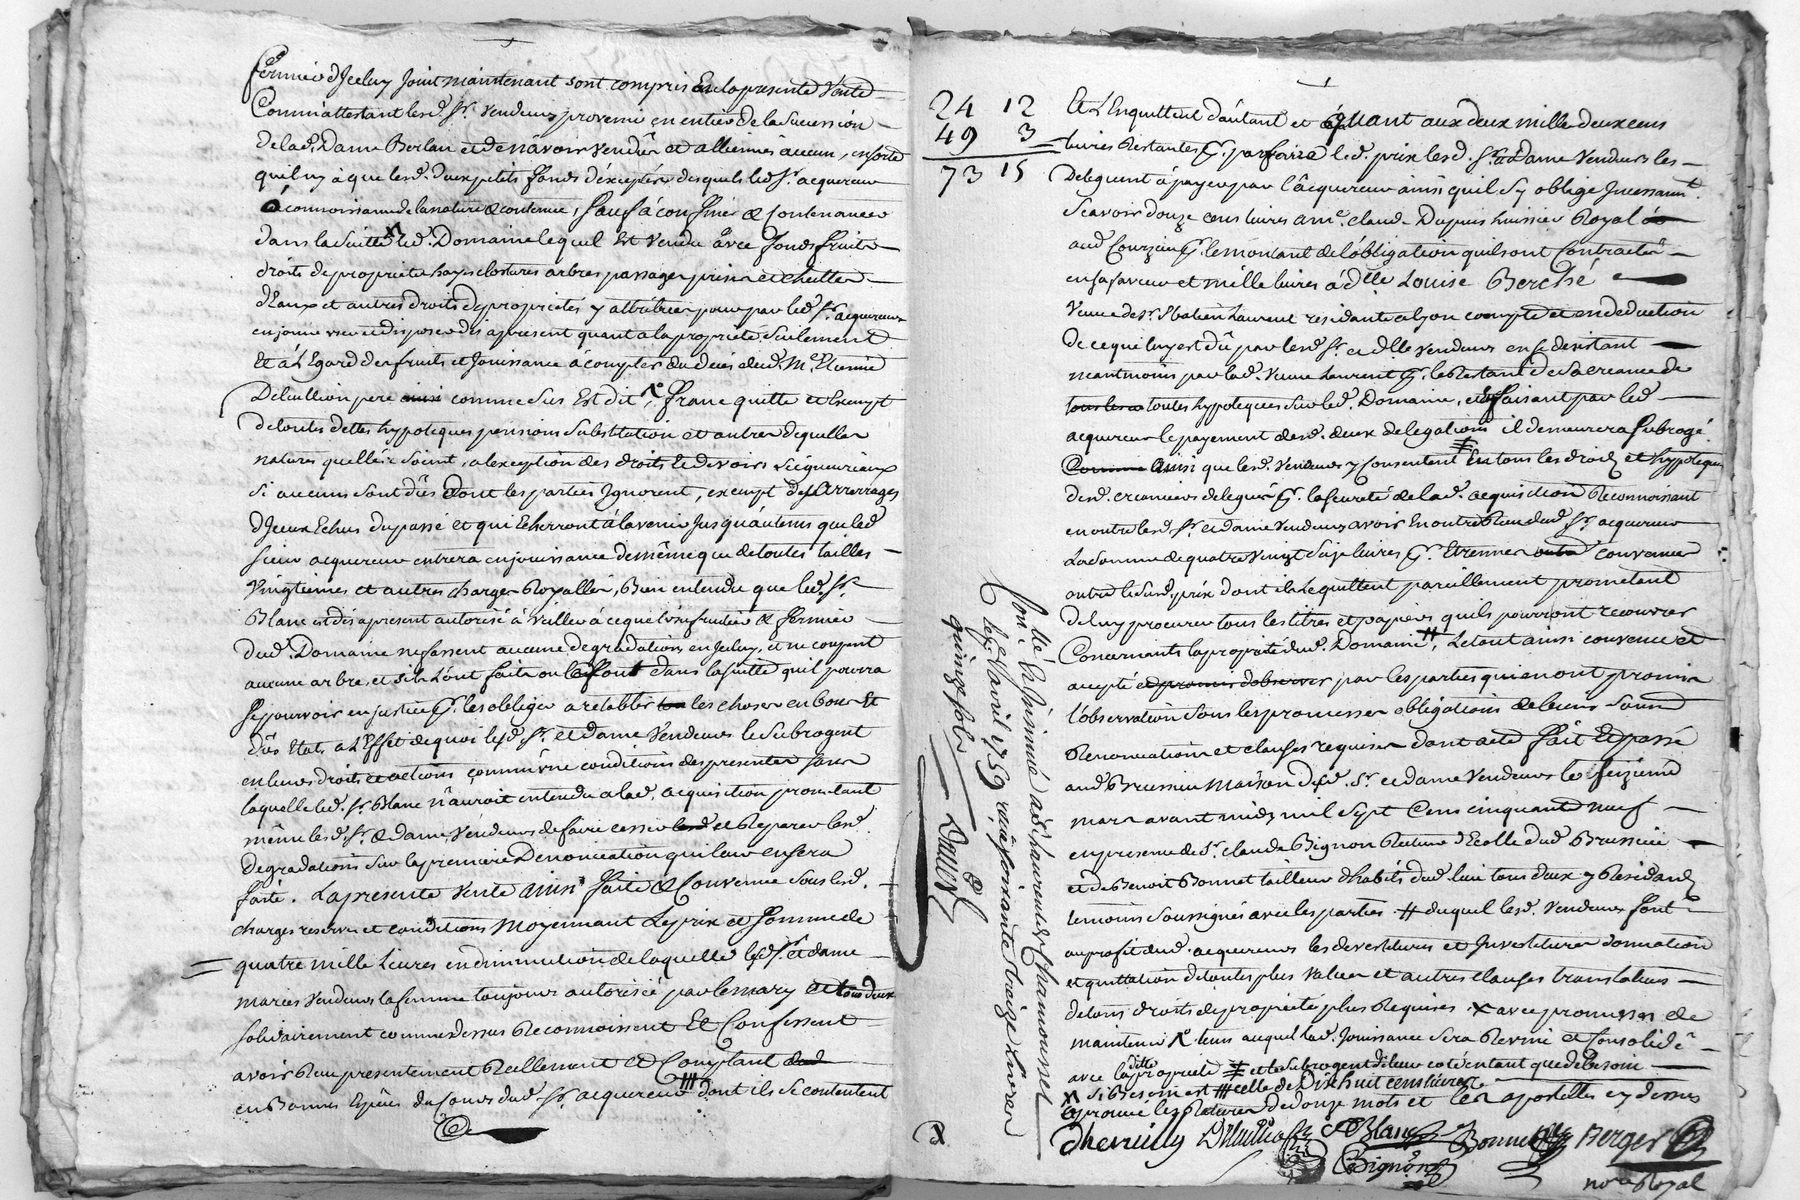 fermier d'Jceluy Joint maintenant sont compris En la presente Vente
Comm'attestant lesd. Srs. Vendeurs provenir en entier de la Succession
de lad. Dame Berlan et de n'avoir Vendus et alliennés aucun, ensorte
quil ny à que lesd. deux petits fonds d'exceptés desquels led Sr. acquereur
à connoissance de la nature & contenue, sauf à confiner & Contenancer
dans la suitte led. Domaine lequel Est Vendu avec fonds fruits
droits de propriete hayes clostures arbres passages prises et
d'Eaux et autres droits de proprietés y attribués pour par led Sr. acquereur
en jouir user et disposer dès apresent quant a la propriété Seulement
Et à L'Egard des fruits et Jouissance à compter du décès dud. Me. Etienne
pere comme Sus Est dit, franc quitte et Exempt
de toutes dettes hypoteques pensions Substitution et autres de quelles
natures quelles soient, alexception des droits & devoirs Seigneuriaux
Si aucuns sont dûs dont les parties Ignorent, exempt des Arrerrages
d'Jceux Echus du passé et qui Echerront à lavenir Jusquàutems que led
sieur acquereur entrera en jouissance de même que de toutes tailles
Vingtiemes et autres charges Royalles, Bien entendu que led. Sr.
Blanc est dès apresent autorisé à Veiller à ce que lusufruitier & fermier
dud. Domaine ne fassent aucune degradations en Jceluy, et ne coupent
aucune arbre, et s'ils lont fait ou le font dans la suitte quil pourra
se pourvoir en justice pr. les obliger a retablir les choses en bon Et
dûs Etats a L'Effet de quoi lesd. Sr. et dame Vendeurs le Subrogent
en leurs droits et actions comm'une conditions des presentes sans
laquelle led. Sr. Blanc n'auroit entendu a lad. acquisition promettant
même lesd. Sr. & dame Vendeurs de faire cesser et Reparer lesd.
degradations Sur la premiere Dénonciation qui leur en sera
faite. La presente Vente ainsi faite & Convenue Sous lesd.
charges reserves et conditions moyennant Le prix et Somme de
quatre mille Livres en diminution de laquelle lesd. Sr. et dame
mariés Vendeurs la femme toujours autorisée par le mary et tous deux
solidairement comme dessus Reconnoissent Et Confessent
avoir Reçu presentement Reellement et Comptant
en Bonnes Espèces de Cours dud. Sr. acquereur dont ils se contentent
24 12
49 3
73 15
Et L'Enquittent d'autant et quant aux deux mille deux cens
livres Restantes pr. parfaire led. prix lesd. Sr. & Dame Vendeurs les
Deleguent à payer par l'acquereur ainsi quil S'y oblige Incessamt.
Scavoir douze cens livres a me. claude Dupuis huissier Royal
aud Courzieu pr. le montant de l'obligation quils ont Contractée
en sa faveur et mille livres à dlle Louise Berché
Veuve de Sr. Laurent residante a lyon compte et en deduction
de ce qui luy est dû par lesd. Sr. et Dlle Vendeurs en se desistant
neantmoins par lad. Veuve Laurent pr. le Restant de Sa creance de
toutes hypoteques Sur led. Domaine, et faisant par led
acquereur le payement desd. deux delegations il demeurera Subrogé
Comme ainsi que lesd. Vendeurs y consentent En tous les droits et hypoteques
desd. creanciers delegués pr. la seureté de lad. acquisition Reconnoissant
en outre lesd. Sr. et dame Vendeurs avoir en outre Reçu dud. Sr. acquereur
La Somme de quatre Vingt Seize livres pr. Etrennes convenues
outre le Susd. prix dont ils Lequittent pareillement promettant
de luy procurer tous les titres et papiers quils pourront recouvrer
Concernants la propriété dud. Domaine, Le tout ainsi convenu et
accepté et promis d'observer par les parties qui en ont promis
l'observation Sous les promesses obligations de biens Soumo
Renonciations et clauses requises dont acte fait Et passé
aud Brussieu maison desd. Sr. et dame Vendeurs le seizieme
mars avant midy mil sept Cens cinquante neuf
en presence de Sr. claude Bignon Recteur d'Ecolle dud. Brussieu
et de Benoit Bonnet tailleur d'habits dud. lieu tous deux y Residants
temoins Soussignés avec les parties duquel lesd. Vendeurs font
au profit dud. acquereur les devestitures et Investitures donnation
et quittation de toutes plus Values et autres clauses translatives
de tous droits de propriété plus Requises avec promesses de
maintenir tems auquel lad. Jouissance Sera Revenue et Consolidée
avec la ditte propriété et le Subrogent de leur coté entant que de besoin
Si Besoin est celle de Dix huit cens livres
approuvé les Ratures de douze mots et les apostilles cy dessus
Dhervilly Blanc Bonnet Berger
Bignon
nore Royal
Collé Et Insinué à St Laurent de Chamousset
le avril 1759, reçu soixante treize livres
quinze sols